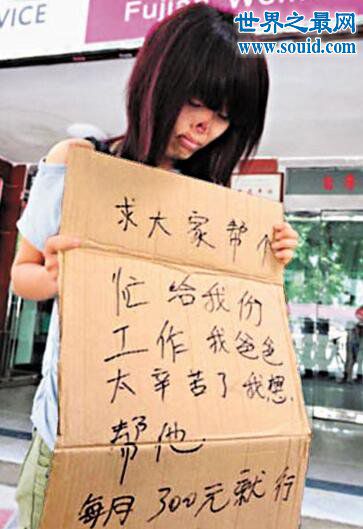 SERVICE
Fujian Wom
世界之最网
www.souid.com
求大家帮个
忙给我份
工作我爸爸
太辛苦了我想
帮他
每月300元就行